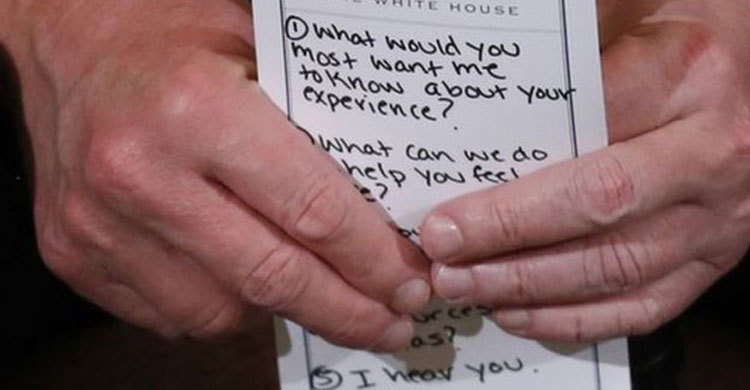 WHITE HOUSE
① What would you
most want me
to know about your
experience?
What can we do
help you feel
e?
as?
⑤ I hear you.